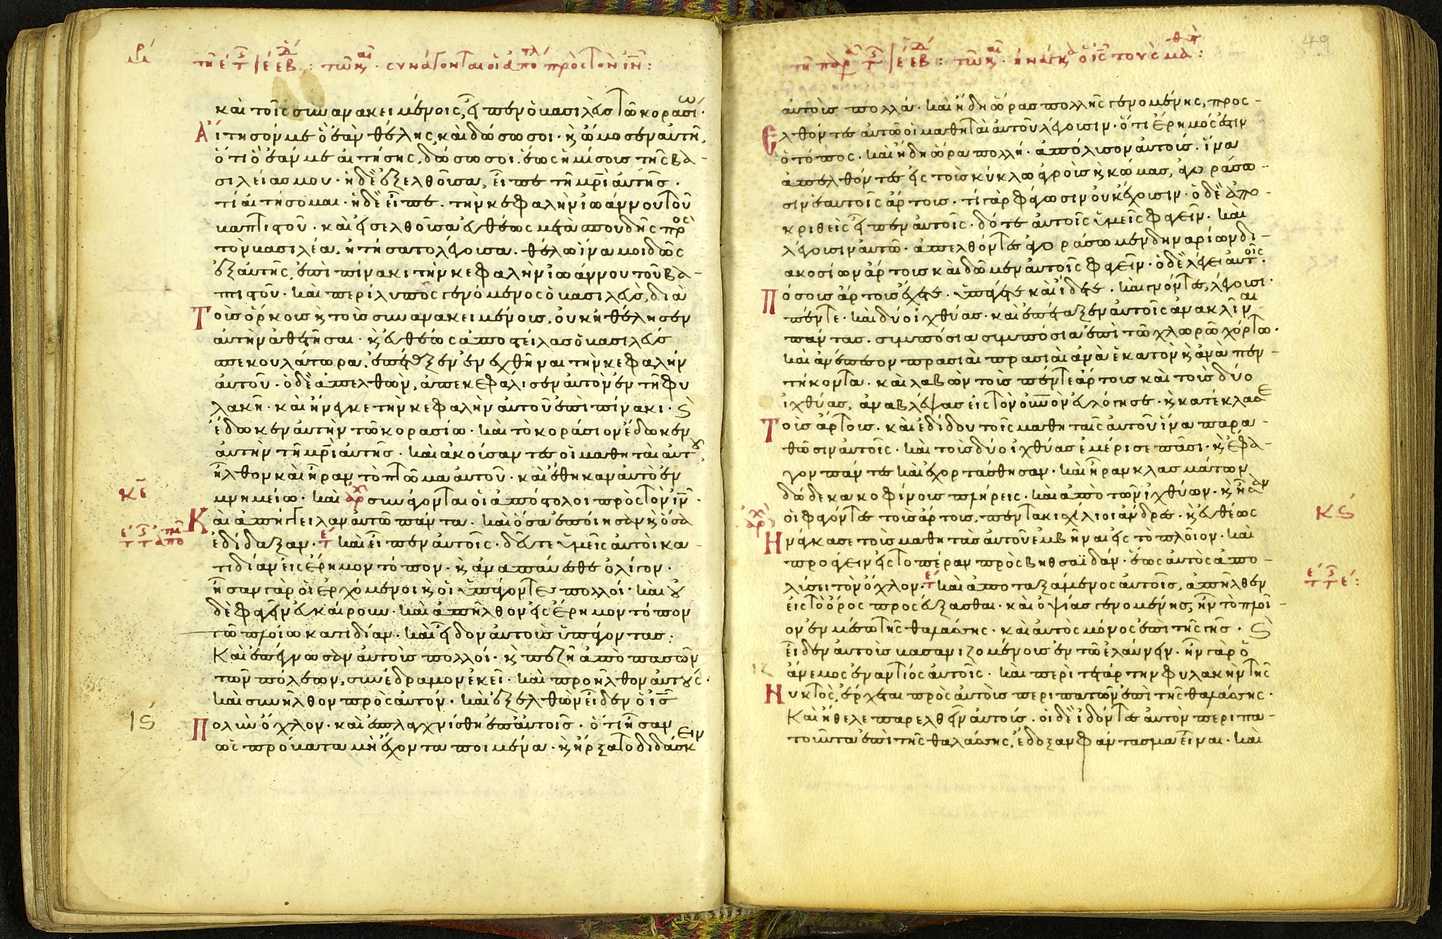 καὶ τοῖς συνανακειμένοις, εἶπεν ὁ βασιλεὺς τῶ κορασίω·
Αἴτησόν με ὃ ἐὰν θέλης, καὶ δώσω σοι· κ ὤμοσεν αὐτῆ,
ὅτι ὃ ἐάν με αἰτήσης, δώσω σοι. ἕως ἡμίσους τῆς βα-
σιλείας μου· ἡ δὲ ἐξελθοῦσα, εἶπε τῆ μρὶ αὐτῆς·
τί αἰτήσομαι· ἡ δὲ εἶπε. τὴν κεφαλὴν ἰωάννου τοῦ
βαπτιστοῦ· καὶ εἰσελθοῦσα εὐθέως μετὰ σπουδῆς πρὸς
τὸν βασιλέα, ἠτήσατο λέγουσα. θέλω ἵνα μοι δῶς
ἐξαυτῆς, ἐπὶ πίνακι τὴν κεφαλὴν ἰωάννου τοῦ βα-
πτιστοῦ· καὶ περίλυπος γενόμενος ὁ βασιλεὺς, διὰ
Τοὺς ὅρκους κ τοὺς συνανακειμένους, οὐκ ἠθέλησεν
αὐτὴν ἀθετῆσαι· κ εὐθέως ἀποστείλας ὁ βασιλεὺς
σπεκουλάτωρα, ἐπέταξεν ἐνεχθῆναι τὴν κεφαλὴν
αὐτοῦ· ὁ δὲ ἀπελθὼν, ἀπεκεφάλισεν αὐτὸν ἐν τῆ φυ
λακῆ· καὶ ἤνεγκε τὴν κεφαλὴν αὐτοῦ ἐπὶ πίνακι· κ
ἔδωκεν αὐτὴν τῶ κορασίω· καὶ τὸ κοράσιον ἔδωκεν
αὐτὴν τῆ μρὶ αὐτῆς· καὶ ἀκούσαντες οἱ μαθηταὶ αὐτοῦ,
ἦλθον καὶ ἦραν τὸ πτῶμα αὐτοῦ· καὶ ἔθηκαν αὐτὸ ἐν
μνημείω· καὶ συνάγονται οἱ ἀπόστολοι πρὸς τὸν ἰν·
Καὶ ἀπήγγειλαν αὐτῶ πάντα· καὶ ὅσα ἐποίησαν κ ὅσα
ἐδίδαξαν· καὶ εἶπεν αὐτοῖς· δεῦτε ὑμεῖς αὐτοὶ κα-
τιδίαν εἰς ἔρημον τόπον· κ ἀναπαύεσθε ὀλίγον·
ἦσαν γὰρ οἱ ἐρχόμενοι κ οἱ ὑπάγοντες πολλοί· καὶ οὐ
δὲ φαγεῖν εὐκαίρουν· καὶ ἀπῆλθον εἰς ἔρημον τόπον
τῶ πλοίω κατιδίαν· καὶ εἶδον αὐτοὺς ὑπάγοντας·
Καὶ ἐπέγνωσαν αὐτοὺς πολλοί· κ πεζῆ ἀπὸ πασῶν
τῶν πόλεων, συνέδραμον ἐκεῖ· καὶ προῆλθον αὐτούς·
καὶ συνῆλθον πρὸς αὐτόν· καὶ ἐξελθὼν εἶδεν ὁ ις
Πολὺν ὄχλον· καὶ ἐσπλαγχνίσθη ἐπ αὐτοῖς· ὅτι ἦσαν
ὡς πρόβατα μὴ ἔχοντα ποιμένα· κ ἤρξατο διδάσκειν
ΚΕ
ΙϚ
αὐτοὺς πολλά· καὶ ἤδη ὥρας πολλῆς γενομένης, προς-
Ελθόντες αὐτῶ οἱ μαθηταὶ αὐτοῦ λέγουσιν· ὅτι ἔρημός ἐστιν
ὁ τόπος· καὶ ἤδη ὥρα πολλή· ἀπόλυσον αὐτούς. ἵνα
ἀπελθόντες εἰς τοὺς κύκλω ἀγροὺς κ κώμας, ἀγοράσω-
σιν ἑαυτοῖς ἄρτους· τί γὰρ φάγωσιν οὐκ ἔχουσιν· ὁ δὲ ἀπο-
κριθεὶς εἶπεν αὐτοῖς· δότε αὐτοῖς ὑμεῖς φαγεῖν· καὶ
λέγουσιν αὐτῶ· ἀπελθόντες ἀγοράσωμεν δηναρίων δι-
ακοσίων ἄρτους καὶ δῶμεν αὐτοῖς φαγεῖν· ὁ δὲ λέγει αὐτοῖς·
Πόσους ἄρτους ἔχετε· ὑπάγετε καὶ ἴδετε· καὶ γνόντες, λέγουσι·
πέντε· καὶ δύο ἰχθύας· καὶ ἐπέταξεν αὐτοῖς ἀνακλῖναι
πάντας· συμπόσια συμπόσια ἐπὶ τῶ χλωρῶ χόρτω·
καὶ ἀνέπεσον πρασιαὶ πρασιαὶ ἀνὰ ἑκατὸν κ ἀνὰ πεν-
τήκοντα· καὶ λαβὼν τοὺς πέντε ἄρτους καὶ τοὺς δύο
ἰχθύας, ἀναβλέψας εἰς τὸν οὐνὸν εὐλόγησε· κ κατέκλασε
Τοὺς ἄρτους· καὶ ἐδίδου τοῖς μαθηταῖς αὐτοῦ ἵνα παρα-
θῶσιν αὐτοῖς· καὶ τοὺς δύο ἰχθύας ἐμέρισε πᾶσι· κ ἔφα-
γον πάντες καὶ ἐχορτάσθησαν· καὶ ἦραν κλασμάτων
δώδεκα κοφίνους πλήρεις· καὶ ἀπὸ τῶν ἰχθύων· κ ἦσαν
οἱ φαγόντες τοὺς ἄρτους, πεντακισχίλιοι ἄνδρες· κ εὐθέως
Ηνάγκασε τοὺς μαθητὰς αὐτοῦ ἐμβῆναι εἰς τὸ πλοῖον· καὶ
προάγειν εἰς τὸ πέραν πρὸς βηθσαϊδάν· ἕως αὐτὸς ἀπο-
λύσει τὸν ὄχλον· καὶ ἀποταξάμενος αὐτοῖς, ἀπῆλθεν
εἰς τὸ ὄρος προσεύξασθαι· καὶ ὀψίας γενομένης, ἦν τὸ πλοῖ-
ον ἐν μέσω τῆς θαλάσσης· καὶ αὐτὸς μόνος ἐπὶ τῆς γῆς· κ
εἶδεν αὐτοὺς βασανιζομένους ἐν τῶ ἐλαύνειν· ἦν γὰρ ὁ
ἄνεμος ἐναντίος αὐτοῖς· καὶ περὶ τετάρτην φυλακὴν τῆς
Νυκτὸς, ἔρχεται πρὸς αὐτοὺς περιπατῶν ἐπὶ τῆς θαλάσσης·
Καὶ ἤθελε παρελθεῖν αὐτούς· οἱ δὲ ἰδόντες αὐτὸν περιπα-
τοῦντα ἐπὶ τῆς θαλάσσης, ἔδοξαν φάντασμα εἶναι· καὶ
ΚϚ
49